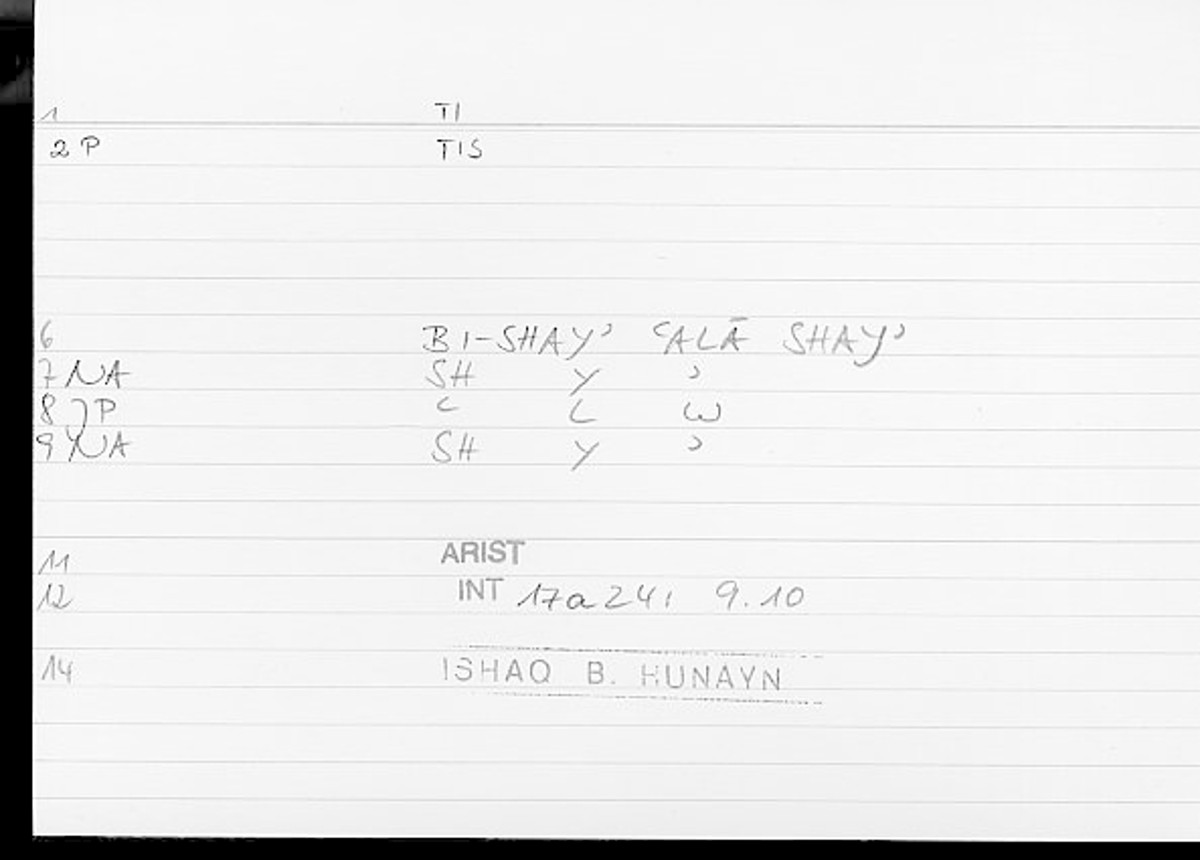 1 TI
2 P TIS
6 BI-SHAYʾ ʿALĀ SHAYʾ
7 NA SH Y ʾ
8 ) P ʿ L W
9 NA SH Y ʾ
11 ARIST
12 INT 17a24; 9.10
14 ISHAQ B. HUNAYN